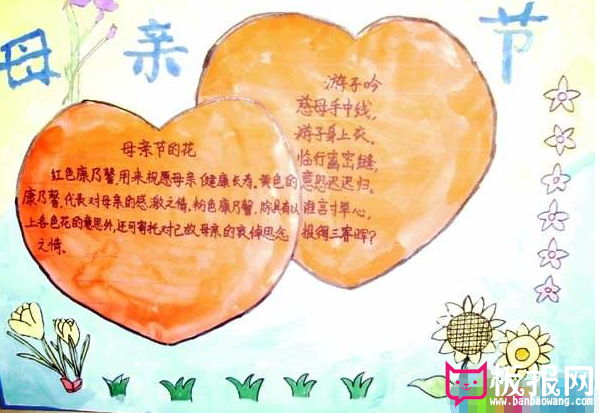 母亲节
游子吟
慈母手中线，
游子身上衣。
临行密密缝，
意恐迟迟归。
谁言寸草心，
报得三春晖？
母亲节的花
红色康乃馨，用来祝愿母亲健康长寿。黄色的
康乃馨，代表对母亲的感激之情。粉色康乃馨，除具有以
上各色花的意思外，还可寄托对已故母亲的哀悼思念
之情。
板报网
www.banbaowang.com